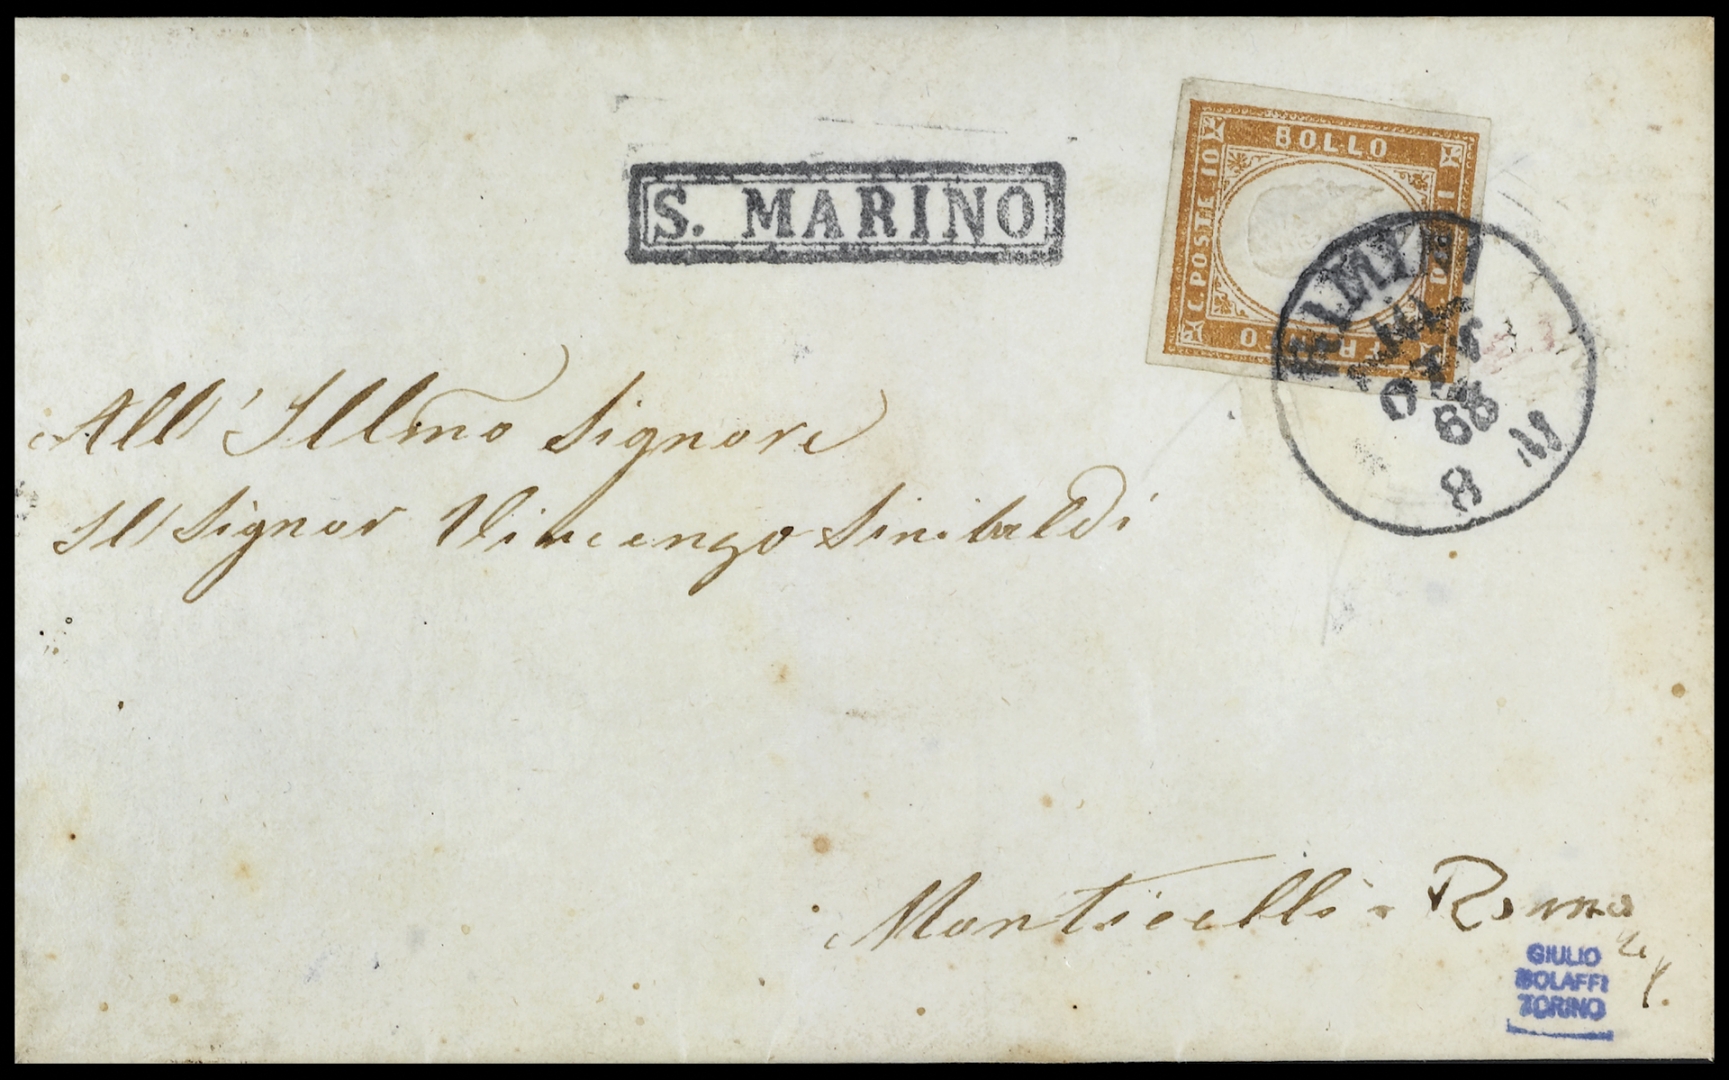 S. MARINO
BOLLO
C. POSTE 10
FRANCO
RIMINI
8 M
All' Illmo Signore
Il Signor Vincenzo Sinibaldi
Monticelli - Roma
GIULIO
BOLAFFI
TORINO